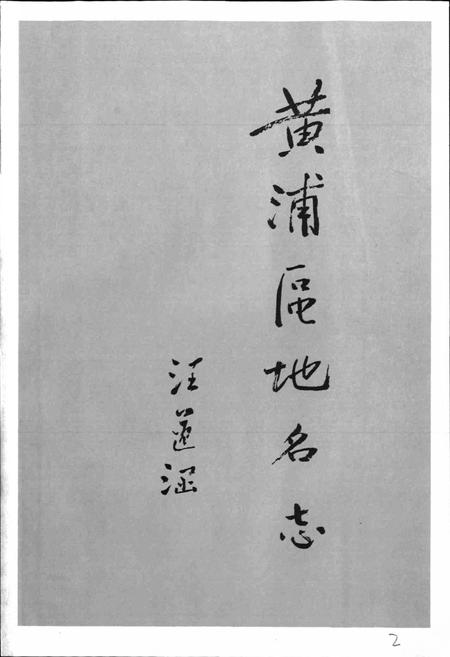 黄浦區地名志
汪道涵
2